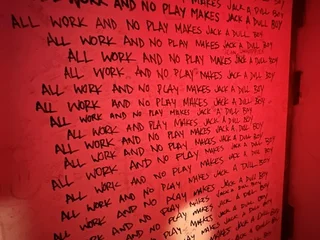 WORK AND NO PLAY MAKES JACK A DULL BOY
ALL WORK AND NO PLAY MAKES JACK A DULL BOY
ALL WORK AND NO PLAY MAKES JACK A DULL BOY
ALL WORK AND NO PLAY MAKES JACK A DULL BOY
ALL WORK AND NO PLAY MAKES JACK A DULL BOY
ALL WORK AND NO PLAY MAKES JACK A DULL BOY
ALL WORK AND NO PLAY MAKES JACK A DULL BOY
ALL WORK AND NO PLAY MAKES JACK A DULL BOY
ALL WORK AND NO PLAY MAKES JACK A DULL BOY
ALL WORK AND NO PLAY MAKES JACK A DULL BOY
ALL WORK AND NO PLAY MAKES JACK A DULL BOY
ALL WORK AND NO PLAY MAKES JACK A DULL BOY
ALL WORK AND NO PLAY MAKES JACK A DULL BOY
ALL WORK AND NO PLAY MAKES JACK A DULL BOY
ALL WORK AND NO PLAY MAKES JACK A DULL